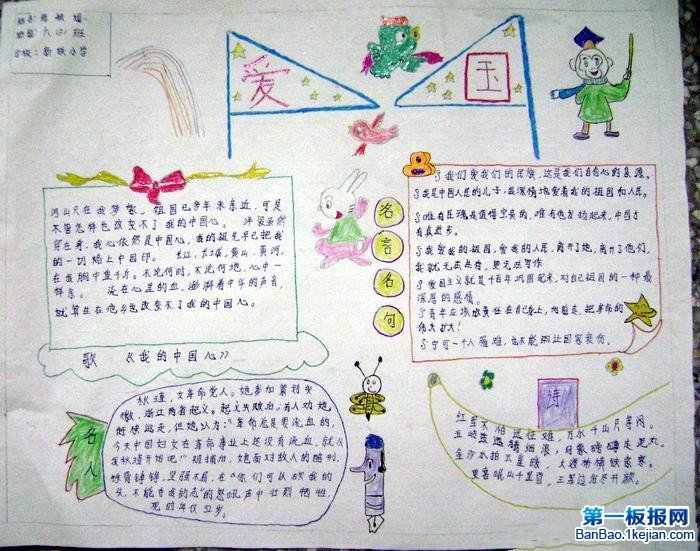 班
学校：新联小学
爱
国
河山只在我梦萦，祖国已多年未亲近，可是
不管怎样也改变不了我的中国心。 洋装虽然
穿在身，我心依然是中国心，我的祖先早已把我
的一切烙上中国印。 长江，长城，黄山，黄河，
在我胸中重千斤。不论何时，不论何地，心中一
样亲。 流在心里的血，澎湃着中华的声音，
就算生在他乡也改变不了我的中国心。
歌 《我的中国心》
名
言
名
句
我们爱我们的民族，这是我们自信心的泉源。
我是中国人民的儿子，我深情地爱着我的祖国和人民。
唯有民魂是值得宝贵的，唯有他发扬起来，中国才
有真进步。
我爱我的祖国，爱我的人民，离开了她，离开了他们，
我就无法生存，更无法写作
爱国主义就是千百年巩固起来的对自己祖国的一种最
深厚的感情。
名
人
秋瑾，女革命党人。她参加策划安
徽、浙江两省起义。起义失败后，有人劝她
赶快逃走，但她认为：“革命总是要流血的，
今天中国妇女在革命事业上还没有流血，就从
我秋瑾开始吧”
诗
红军不怕远征难，万水千山只等闲。
五岭逶迤腾细浪，乌蒙磅礴走泥丸。
金沙水拍云崖暖，大渡桥横铁索寒。
更喜岷山千里雪，三军过后尽开颜。
第一板报网
BanBao.1kejian.com